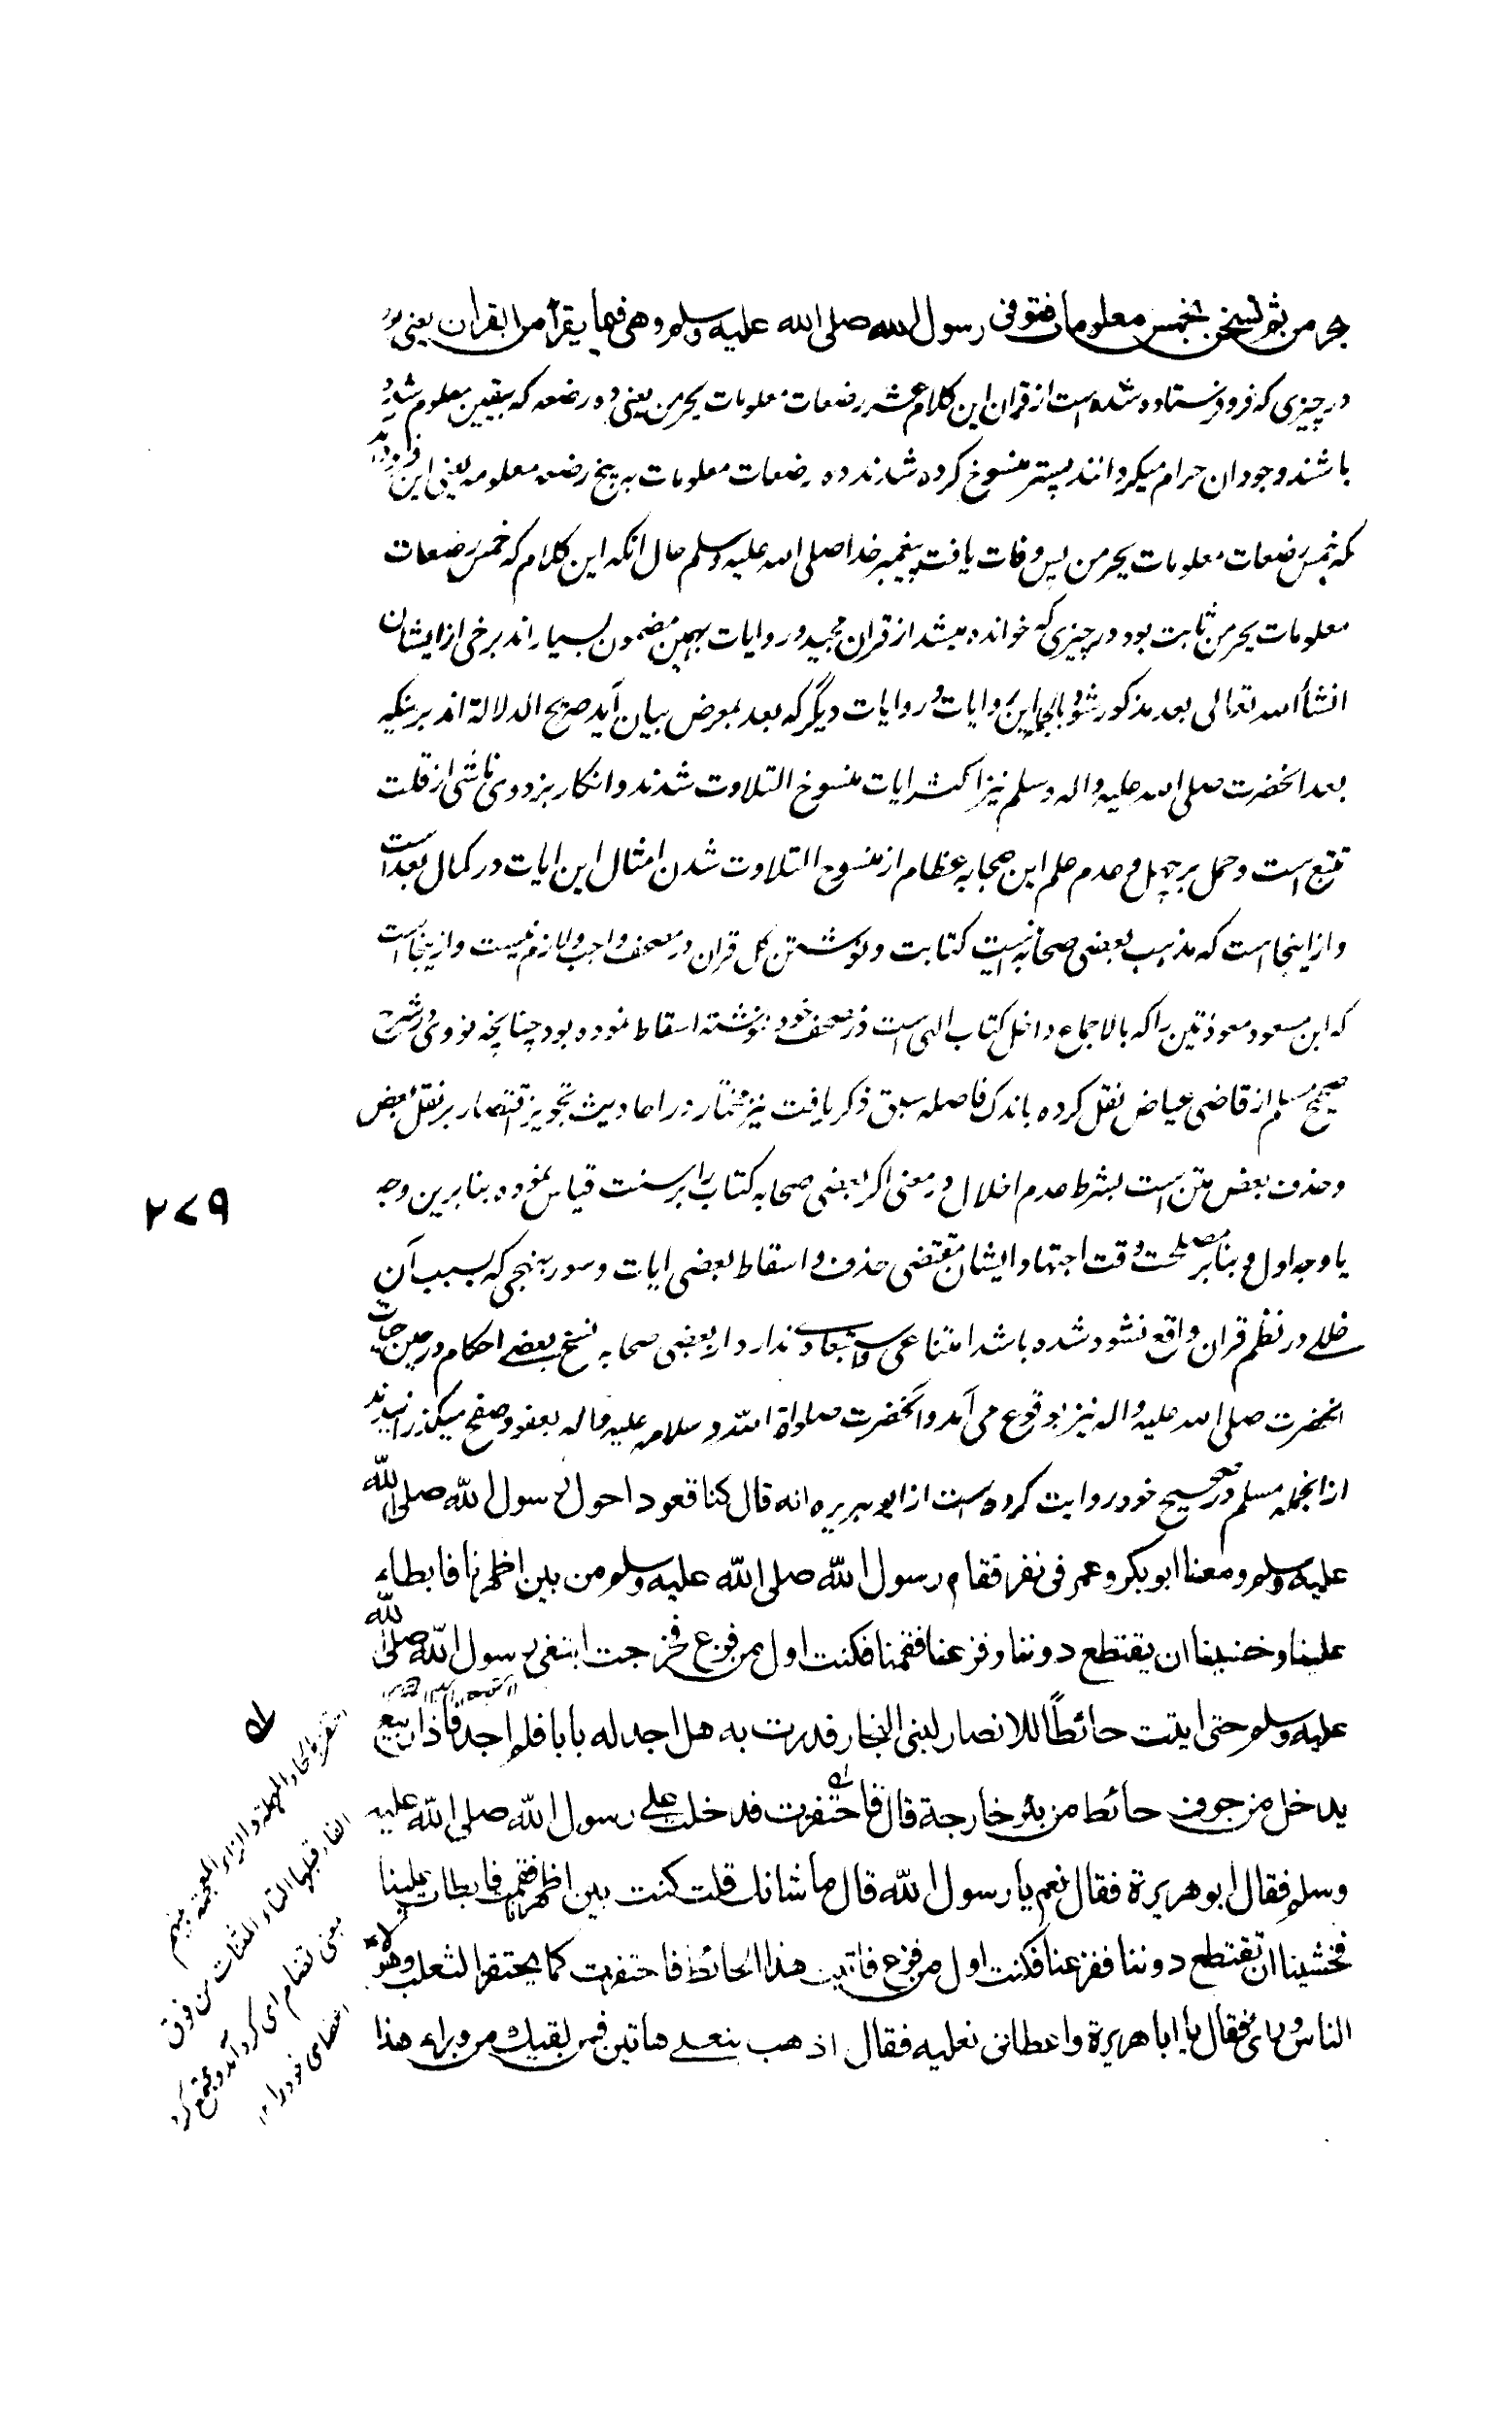 يحرمن ثم نسخن بخمس معلومات فتوفى رسول الله صلى الله عليه وسلم وهى فيما يقرأ من القران يعنى بود
در چیزی که فرو فرستاده شده است از قران این کلام عشر رضعات معلومات یحرمن یعنی ده رضعه که بیقین معلوم شده
باشند وجود ان حرام میگردانند پستر منسوخ کرده شدند ده رضعات معلومات به پنج رضعه معلومه یعنی این فرود آمد
که خمس رضعات معلومات یحرمن پس وفات یافت پیغمبر خدا صلی الله علیه وسلم حال انکه این کلام که خمس رضعات
معلومات یحرمن ثابت بود در چیزی که خوانده میشد از قران مجید و روایات بهمین مضمون بسیار اند برخی از ایشان
انشأ الله تعالی بعد مذکور شود بالجمله این روایات و روایات دیگر که بعد بمعرض بیان آید صریح الدلالة اند برینکه
بعد انحضرت صلی الله علیه واله وسلم نیز اکثر ایات منسوخ التلاوت شدند و انکار بزدوی ناشی از قلت
تتبع است و حمل بر جهل و عدم علم این صحابه عظام از منسوخ التلاوت شدن امثال این ایات در کمال بعد است
و از اینجا است که مذهب بعضی صحابه اینست کتابت و نوشتن کل قران در مصحف واجب و لازم نیست و ازینجا است
که ابن مسعود معوذتین را که بالاجماع داخل کتاب الهی است در مصحف خود ننوشته اسقاط نموده بود چنانچه نووی در شرح
صحیح مسلم از قاضی عیاض نقل کرده باندک فاصله سبق ذکر یافت نیز مختار در احادیث تجویز اقتصار بر نقل بعض
و حذف بعض متن است بشرط عدم اخلال در معنی اگر بعضی صحابه کتاب را بر سنت قیاس نموده بنابرین وجه
یا وجه اول و بنابر مصلحت وقت اجتهاد ایشان مقتضی حذف و اسقاط بعضی ایات و سور بنهجی که بسبب آن
خللے در نظم قران واقع نشود شده باشد امتناعی و استبعادے ندارد از بعضی صحابه نسخ بعضے احکام در حین حیات
انحضرت صلی الله علیه واله نیز بوقوع می آمد و آنحضرت صلواة الله و سلامه علیه واله بعفو و صفح میگذرانیدند
از انجمله مسلم در صحیح خود روایت کرده است از ابو هریره انه قال كنا قعودا حول رسول الله صلى الله
عليه وسلم ومعنا ابوبكر وعمر فى نفر فقام رسول الله صلى الله عليه وسلم من بين اظهرنا فابطاء
علينا وخشينا ان يقتطع دوننا وفزعنا فقمنا فكنت اول من فزع فخرجت ابتغى رسول الله صلى الله
عليه وسلم حتى اتيت حائطًا للانصار لبنى النجار فدرت به هل اجد له بابا فلم اجد فاذا ربيع
يدخل من جوف حائط من بئر خارجة قال فاحتفزت فدخلت على رسول الله صلى الله عليه
وسلم فقال ابو هريرة فقال نعم يا رسول الله قال ما شانك قلت كنت بين اظهرنا فقمت فابطات علينا
فخشينا ان تقتطع دوننا ففزعنا فكنت اول من فزع فاتيت هذا الحائط فاحتفزت كما يحتفز الثعلب وهؤلاء
الناس ورائى فقال يا اباهريرة واعطانى نعليه فقال اذهب بنعلے هاتين فمن لقيك من وراء هذا
۲۷۹
احتفز بالحاء المهملة والزاء المعجمة بينهم
الفاء قبلها التاء المثناة من فوق
بمعنی تضام ای گرد آمد و جمع کرد
اعضای خود را ۱۲